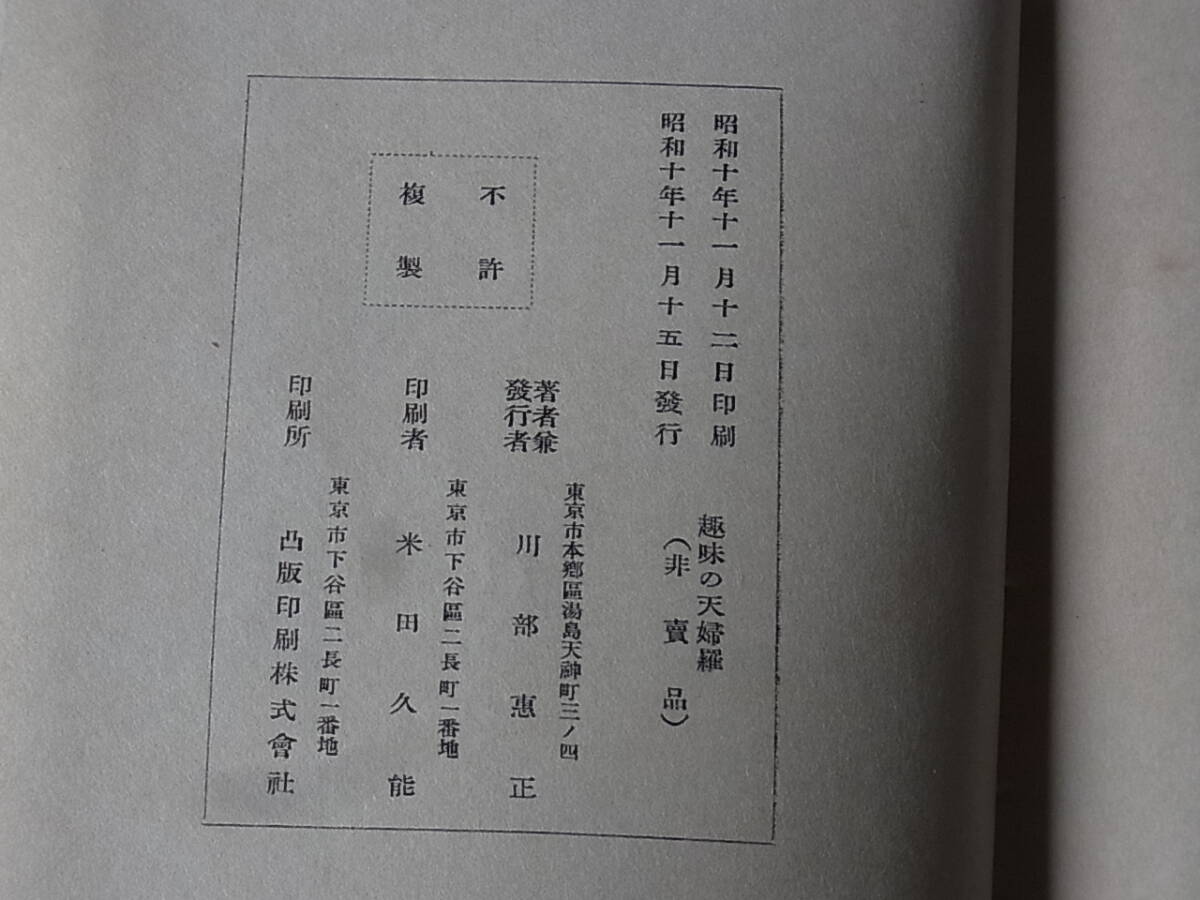 昭和十年十一月十二日印刷
昭和十年十一月十五日發行
趣味の天婦羅
（非賣品）
不許
複製
著者兼
發行者
東京市本鄕區湯島天神町三ノ四
川部惠正
印刷者
東京市下谷區二長町一番地
米田久能
印刷所
東京市下谷區二長町一番地
凸版印刷株式會社